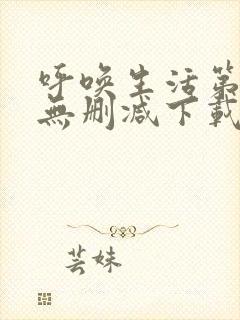 呼唤生活第
無删减下載
芸妹